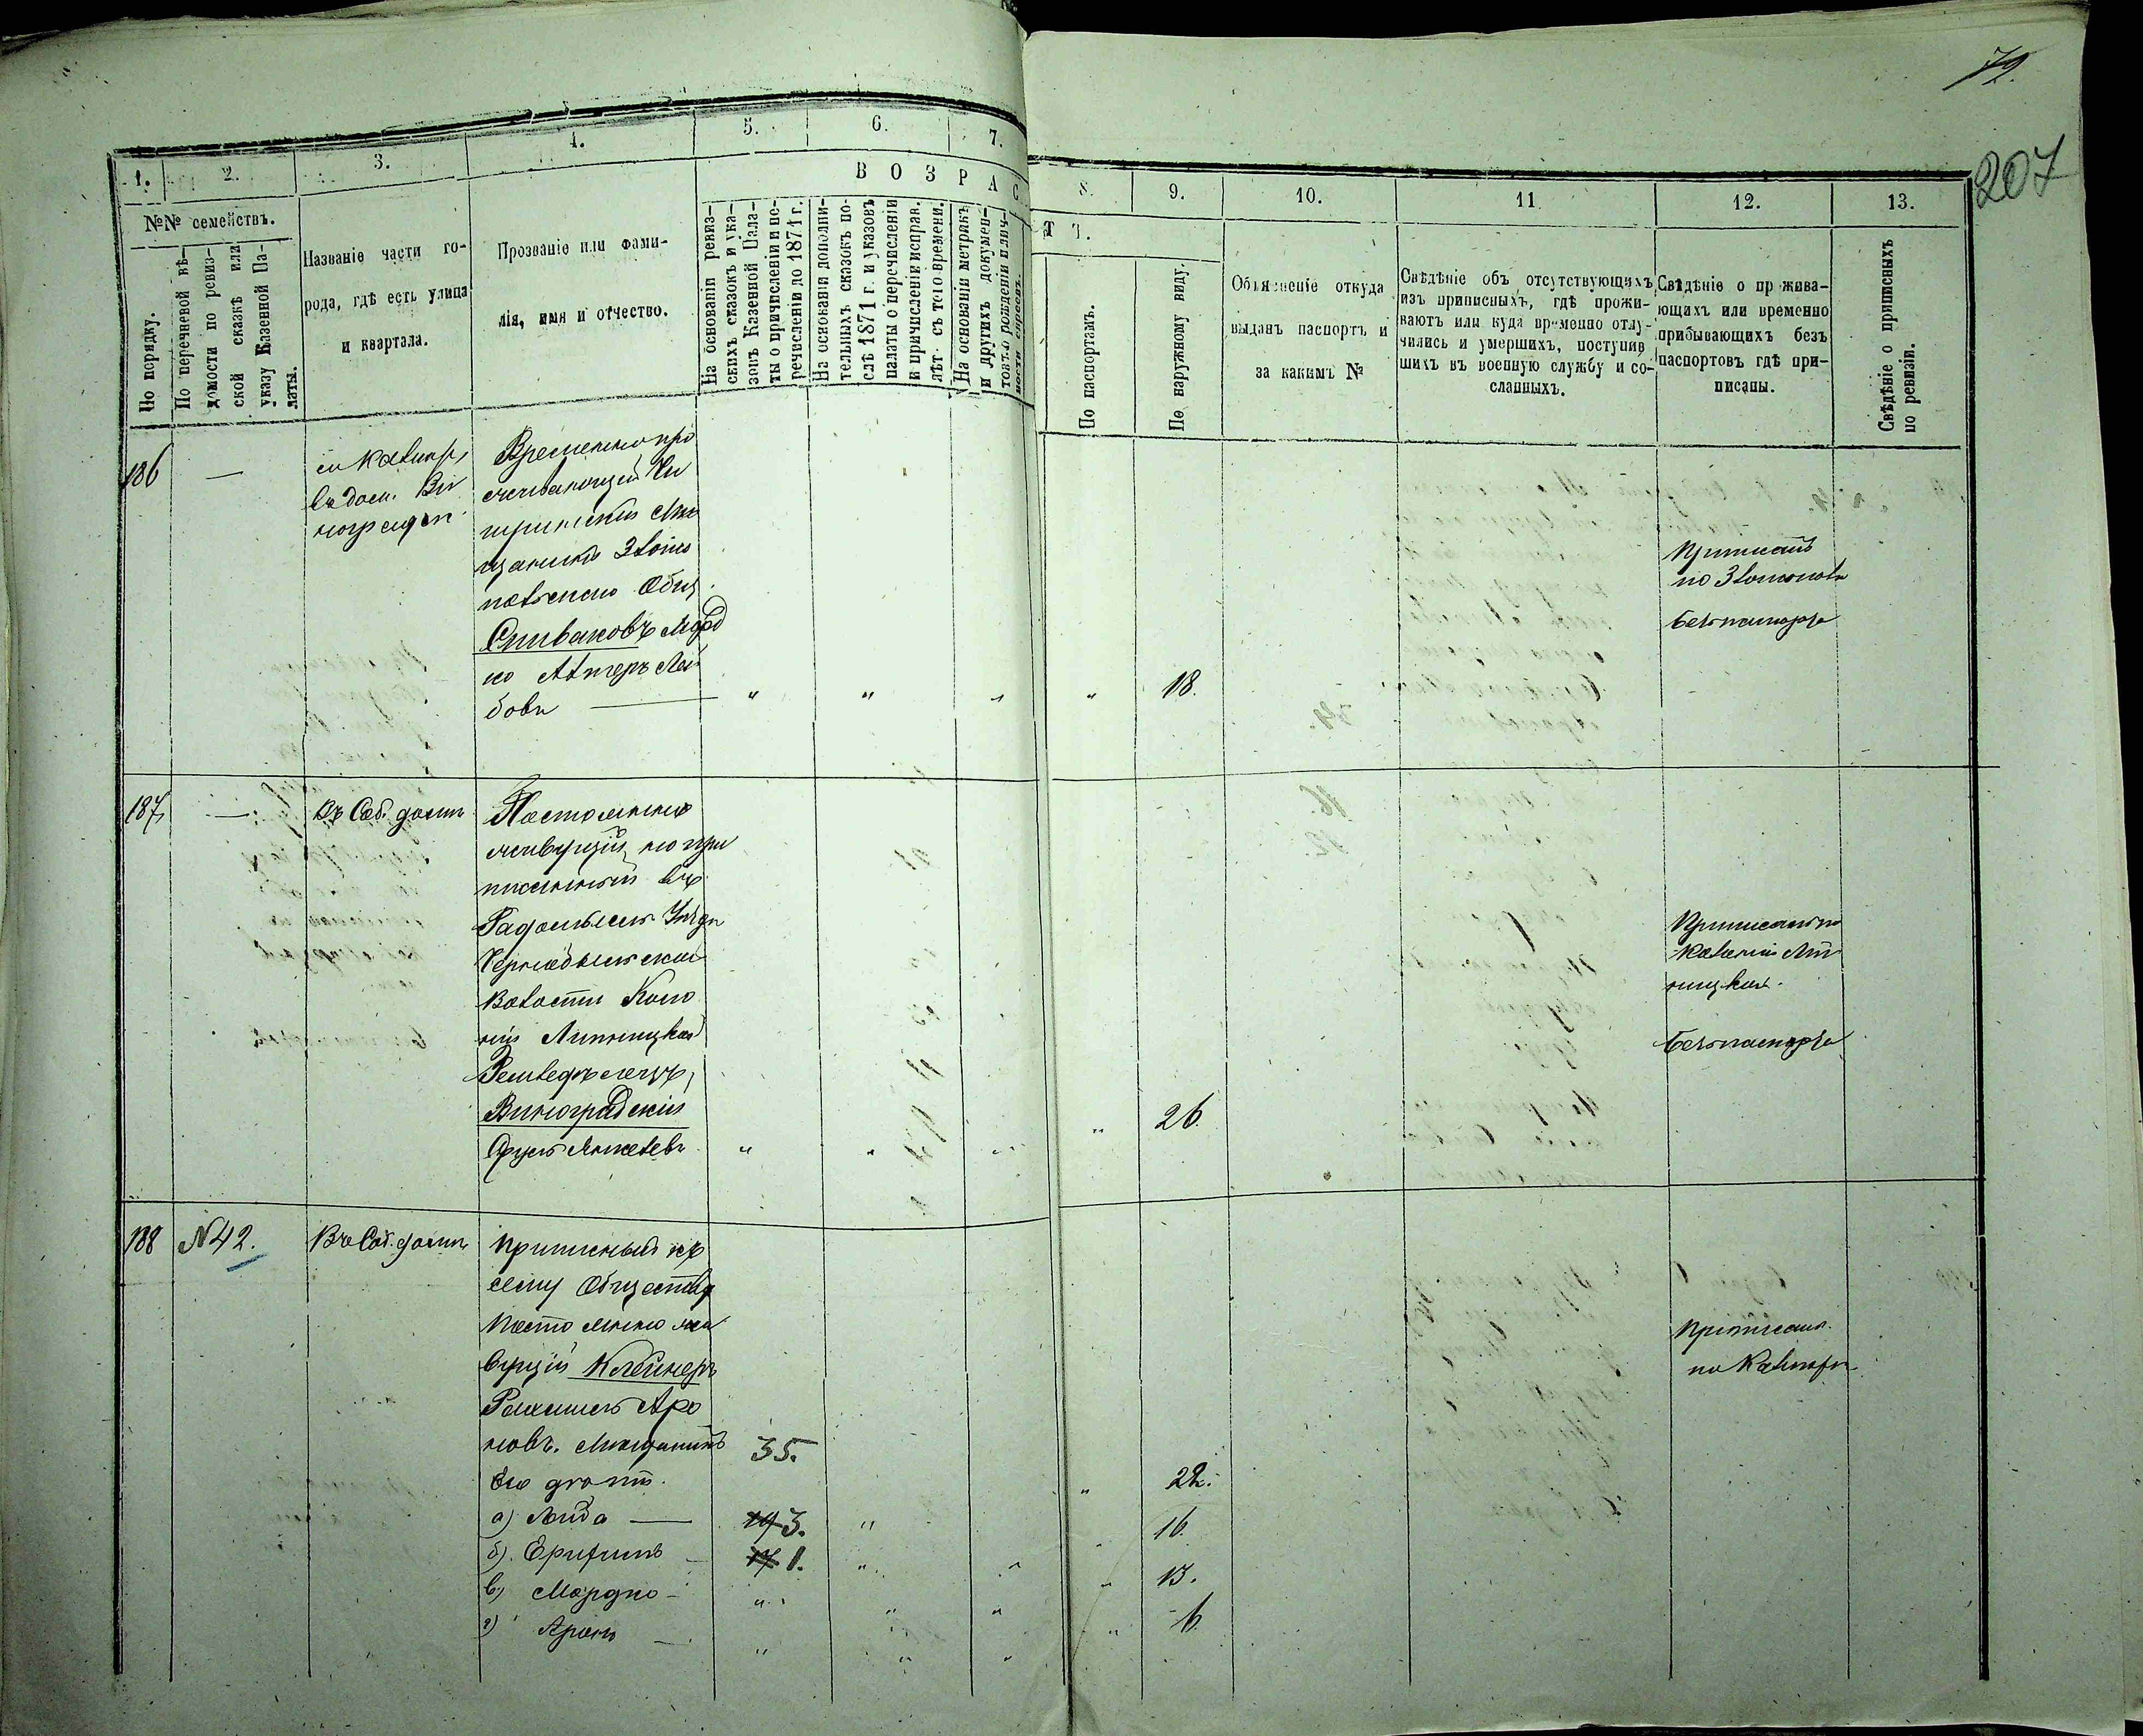 79.
207
1.
2.
3.
4.
5.
6.
7.
8.
9.
10.
11
12.
13.
В О З Р А С
Т Ъ.
№№ семействъ.
По порядку.
По перечневой вѣ-
домости по ревиз-
ской сказкѣ или
указу Казенной Па-
латы.
Названіе части го-
рода, гдѣ есть улица
и квартала.
Прозваніе или фами-
лія, имя и отчество.
На основаніи ревиз-
скихъ сказокъ и ука-
зовъ Казенной Пала-
ты о причисленіи и пе-
речисленіи до 1871 г.
На основаніи дополни-
тельныхъ сказокъ по-
слѣ 1871 г. и указовъ
палаты о перечисленіи
и причисленіи исправ.
лѣт. съ того времени.
На основаніи метрикъ
и другихъ докумен-
товъ о рожденіи и лич-
ности евреевъ.
По паспортамъ.
По наружному виду.
Объясненіе откуда
выданъ паспортъ и
за какимъ №
Свѣдѣніе объ отсутствующихъ
изъ приписныхъ, гдѣ прожи-
ваютъ или куда временно отлу-
чились и умершихъ, поступив
шихъ въ военную службу и со-
сланныхъ.
Свѣдѣніе о прожива-
ющихъ или временно
прибывающихъ безъ
паспортовъ гдѣ при-
писаны.
Свѣдѣніе о приписныхъ
по ревизіи.
186
—
въ дом. Ви
Временно про
живающій Чи
гиринскій Мѣ
щанинъ
Общ.
Спиваковъ Морд
ко Лей
бовъ — " " " " 18.
Приписанъ
по
безъ паспорта
187
—
Въ Соб. домѣ
Постоянно
живущій, но при
писанный въ
Радомысль Уѣзд
Чернобыльской
Волости Коло
ніи
Земледѣлецъ,
Виноградскій
Сруль " " " " 26.
Приписанъ по
Колоніи
безъ паспорта
188
№42.
Въ Соб. домѣ
Приписный къ
сему Обществу
Постоянно жи
вущій Клейнеръ
Аро
новъ. Мѣщанинъ 35.
Его дѣти. " 22.
а) — 3. " 16.
б). — 1. " " 13.
в) Мордко — " " " " 6.
г) Аронъ — " " "
Приписанъ
по